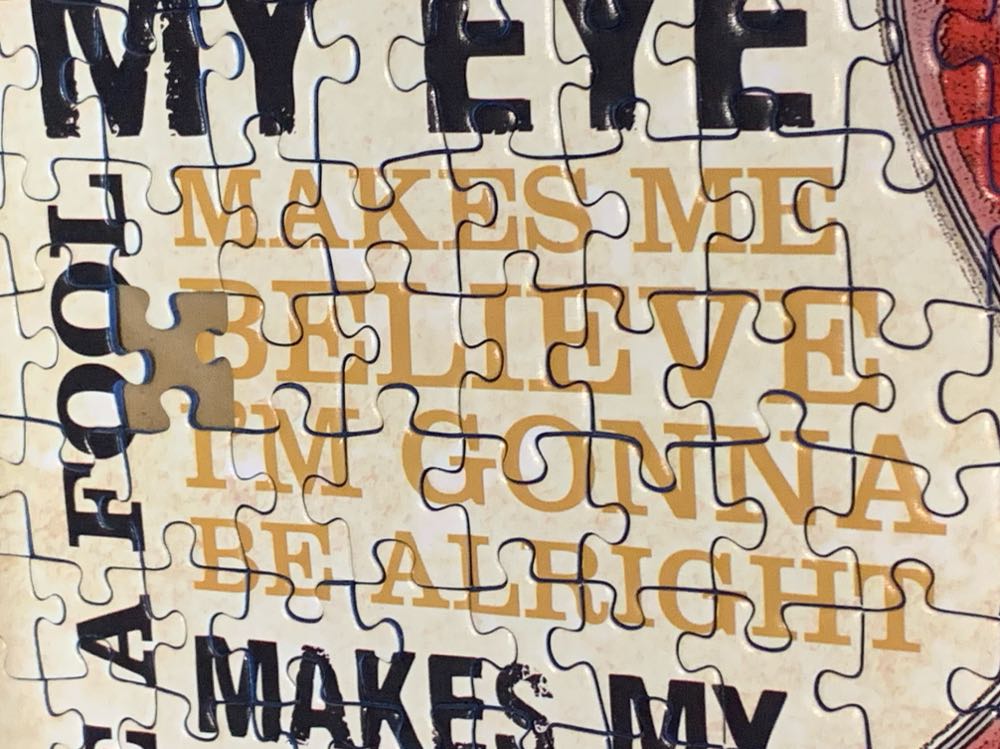 MY EYE
MAKES ME
BELIEVE
I'M GONNA
BE ALRIGHT
MAKES MY
A FOOL